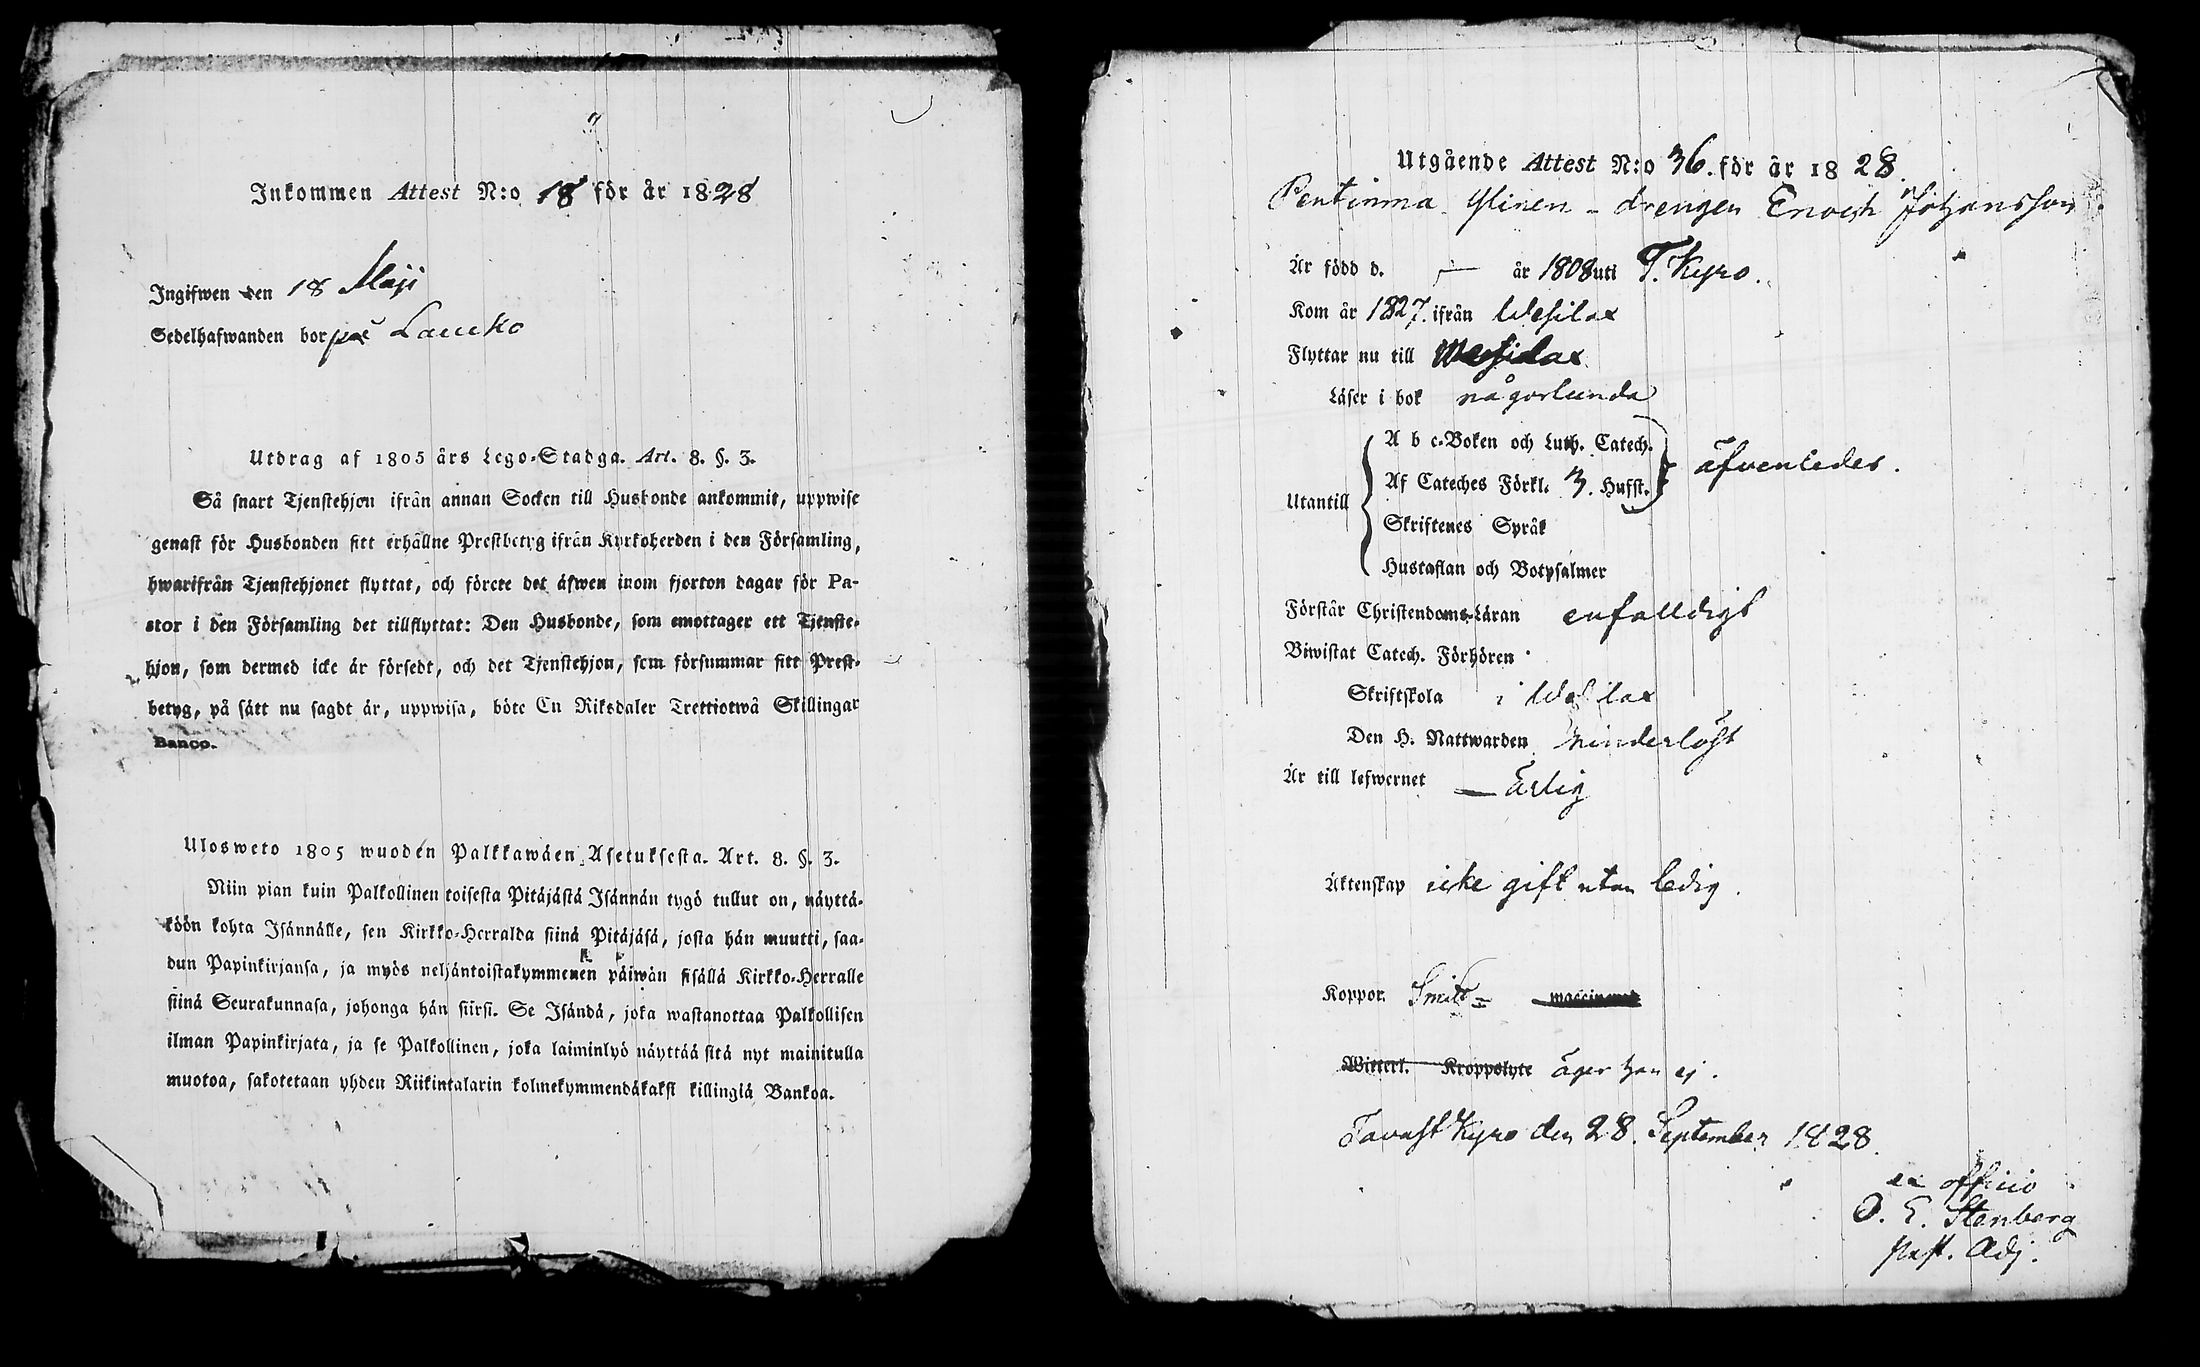 Inkommen Attest N:o 18 för år 1828
Ingifwen den 18 Maji
Sedelhafwanden bor på Laucko
Utdrag af 1805 års Lego-Stadga. Art. 8. §. 3.
Så snart Tjenstehjon ifrån annan Socken till Husbonde ankommit, uppwise
genast för Husbonden sitt erhållne Prestbetyg ifrån Kyrkoherden i den Församling,
hwarifrån Tjenstehjonet flyttat, och förete det äfwen inom fjorton dagar för Pa-
stor i den Församling det tillflyttat: Den Husbonde, som emottager ett Tjenste-
hjon, som dermed icke är försedt, och det Tjenstehjon, som försummar sitt Prest-
betyg, på sätt nu sagdt är, uppwisa, böte En Riksdaler Trettiotwå Skillingar
Banco.
Ulosweto 1805 wuoden Palkkawäen Asetuksesta. Art. 8. §. 3.
Niin pian kuin Palkollinen toisesta Pitäjästä Isännän tygö tullut on, näyttä-
köön kohta Isännälle, sen Kirkko-Herralda siinä Pitäjäsä, josta hän muutti, saa-
dun Papinkirjansa, ja myös neljäntoistakymmenen päiwän sisällä Kirkko-Herralle
siinä Seurakunnasa, johonga hän siirsi. Se Isändä, joka wastanottaa Palkollisen
ilman Papinkirjata, ja se Palkollinen, joka laiminlyö näyttää sitä nyt mainitulla
muotoa, sakotetaan yhden Riikintalarin kolmekymmendäkaksi killingiä Bankoa.
Utgående Attest N:o 36. för år 1828.
Pentinma Ylinen - drengen Enoch Johansson.
Är född d. — år 1808 uti T. Kyro.
Kom år 1827. ifrån Wesilax
Flyttar nu till Wesilax
Läser i bok någorlunda
A b c-Boken och Luth. Catech.
Af Cateches Förkl. 3. Hufst. äfvenledes.
Utantill
Skriftenes Språk
Hustaflan och Botpsalmer
Förstår Christendoms-Läran enfalldigt
Biwistat Catech. Förhören
Skriftskola i Wesilax
Den H. Nattwarden hinderlöst
Är till lefwernet — ärlig
Äktenskap icke gift utan ledig.
Koppor. Smitt= waccinerat
Witterl. Kroppslyte äger han ej.
Tavast Kyro den 28. September 1828.
ex officio
O. E. Stenberg
past. Adj.